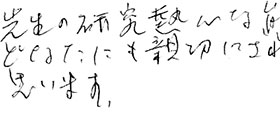 先生の研究熱心な
どなたにも親切にされ
思います。